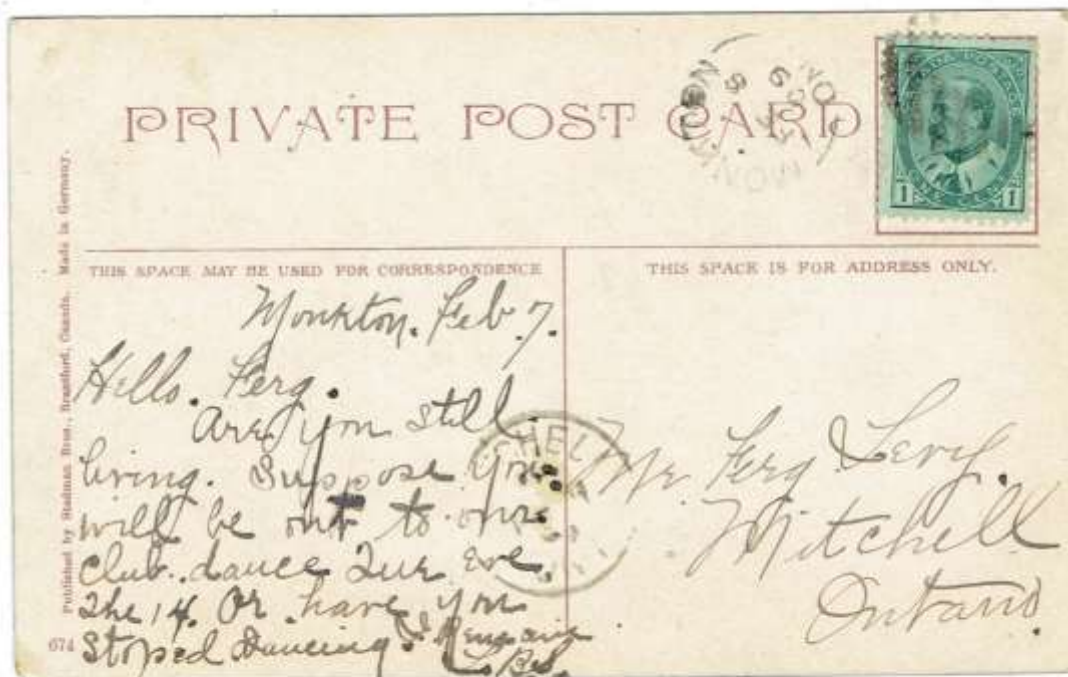 PRIVATE POST CARD
MONKTON
ONT
1 1
Published by Stedman Bros., Brantford, Canada. Made in Germany.
THIS SPACE MAY BE USED FOR CORRESPONDENCE
Monkton. Feb. 7.
Hello. Ferg.
Are you still
living. Suppose you
will be out to our
Club. dance Tue. eve.
The 14. Or have you
Stoped Dancing.
I Remain
674
THIS SPACE IS FOR ADDRESS ONLY.
Mr. Ferg Levy.
Mitchell
Ontario.